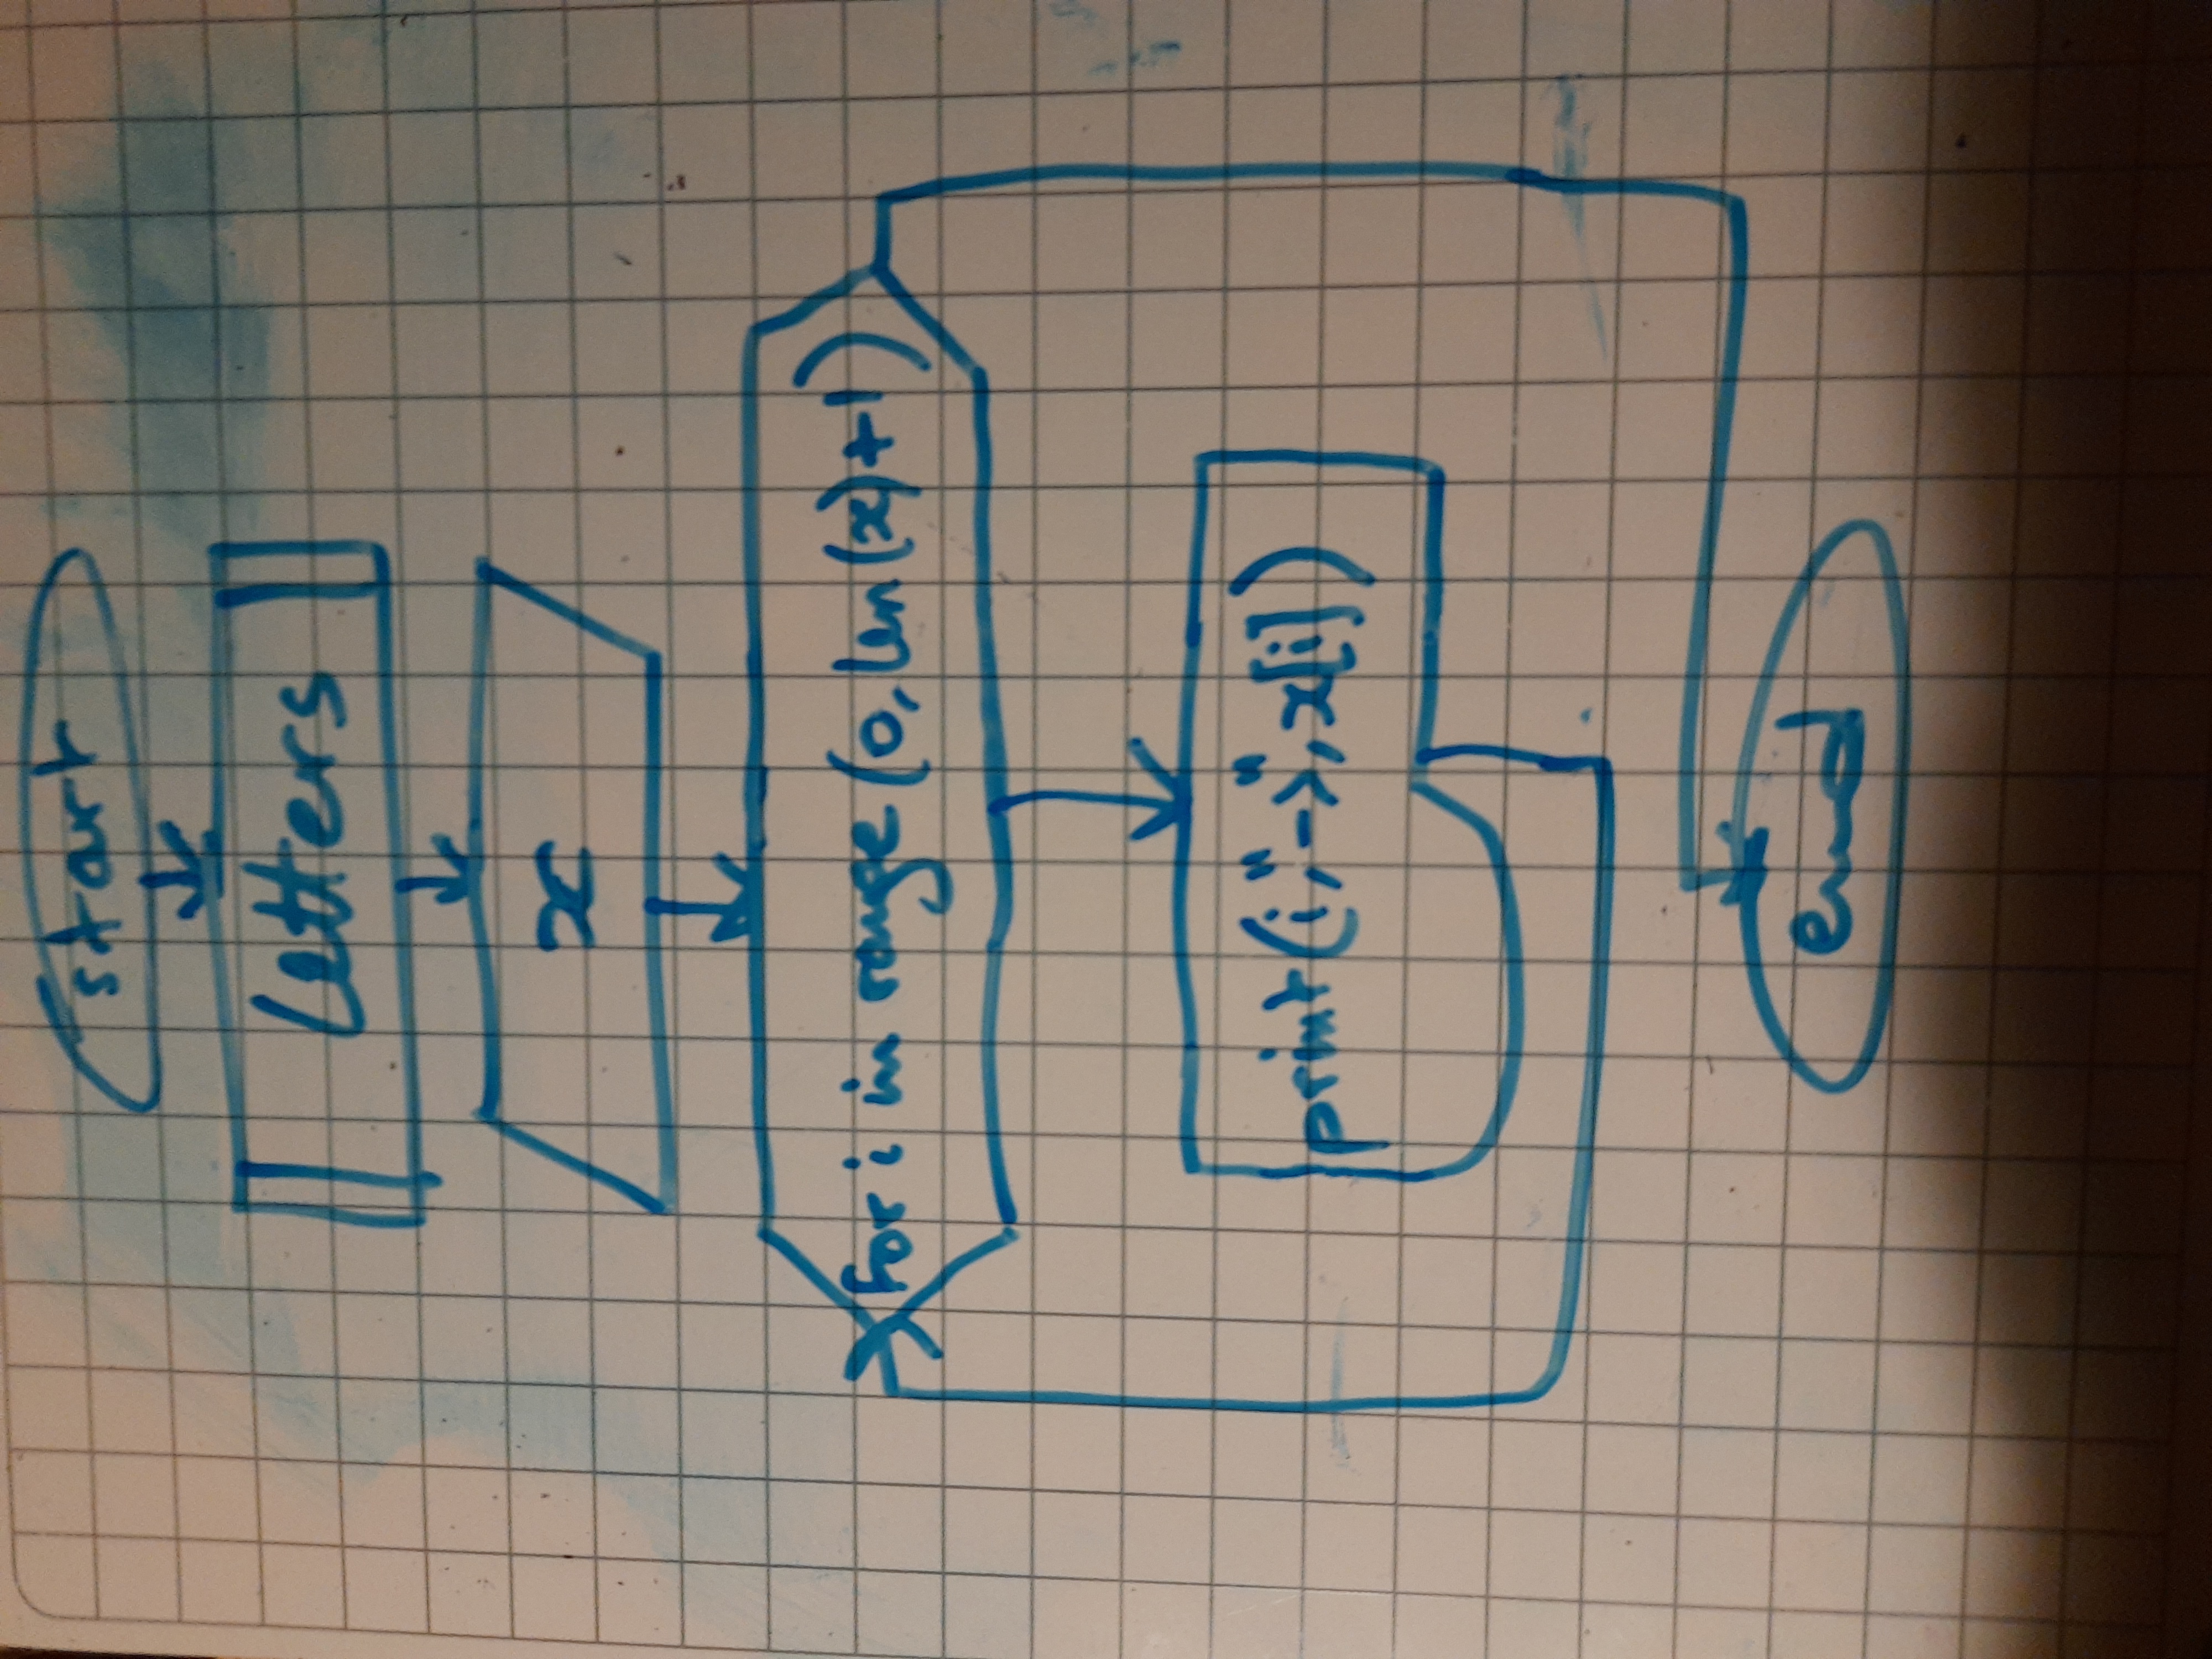 start
Letters
x
for i in range (0, len(x)+1)
print(i,"->",x[i])
end